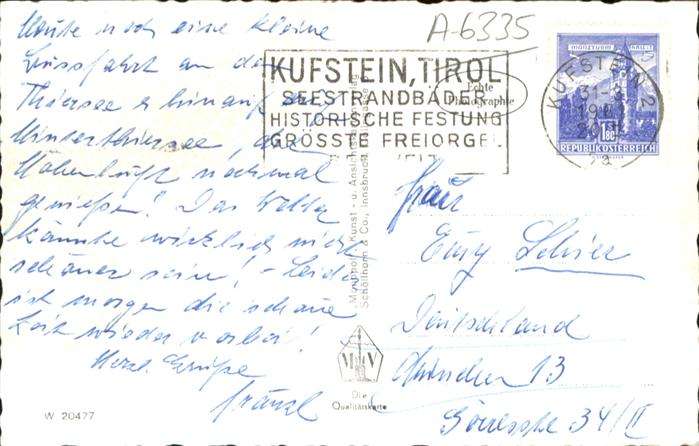 Heute noch eine kleine
Bussfahrt an den
Thiersee & hinauf n.
Hinterthiersee, die
Höhenluft nochmal
genießen! Das Wetter
könnte wirklich nicht
schöner sein! – Leider
ist morgen die schöne
Zeit wieder vorbei!
Herzl. Grüße
Fränzl
W 20477
A-6335
KUFSTEIN, TIROL
SEESTRANDBÄDER
HISTORISCHE FESTUNG
GRÖSSTE FREIORGEL
Echte
Photographie
Kunst- u. Ansichtskarten
Schöllhorn & Co., Innsbruck
Die
Qualitätskarte
MÜNZTURM HALL i. T.
1.80
REPUBLIK ÖSTERREICH
KUFSTEIN 2
31-
2a
Frau
Schier
Deutschland
München 13
34/II